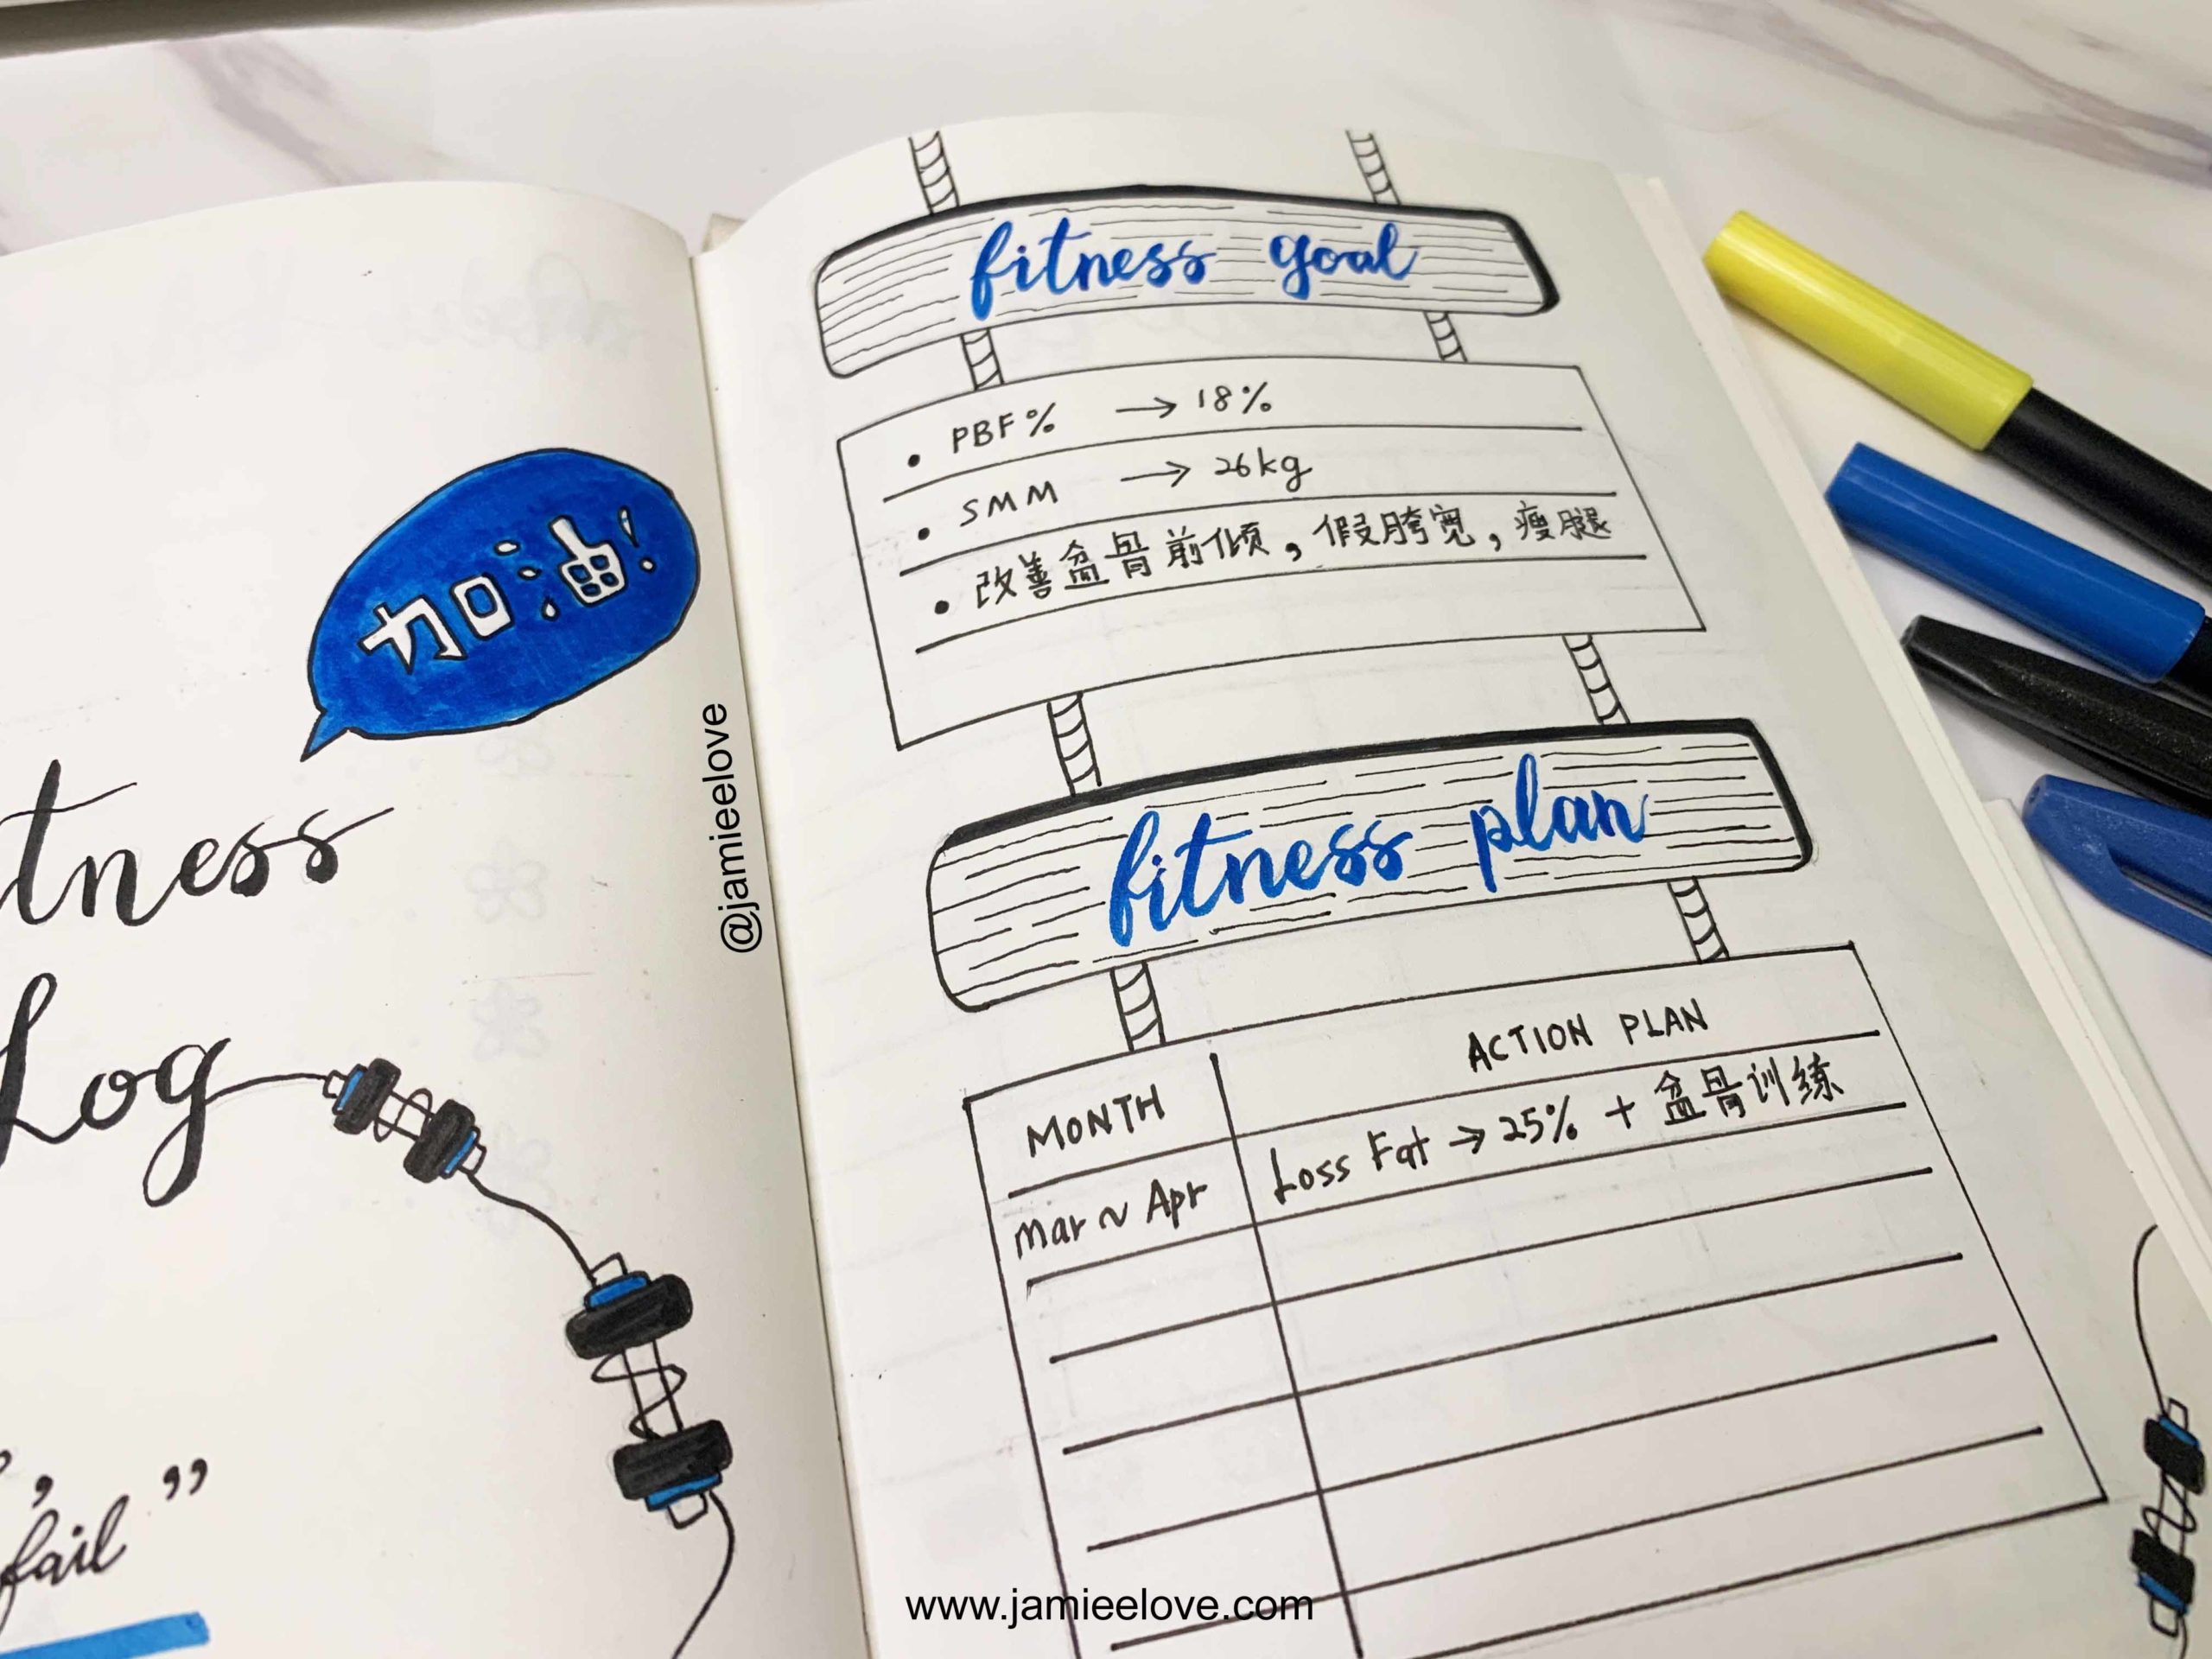 加油!
tness
Log
fail”
@jamieelove
fitness goal
• PBF% → 18%
• SMM → 26kg
• 改善盆骨前倾，假胯宽，瘦腿
fitness plan
MONTH ACTION PLAN
Mar ~ Apr Loss Fat → 25% + 盆骨训练
www.jamieelove.com